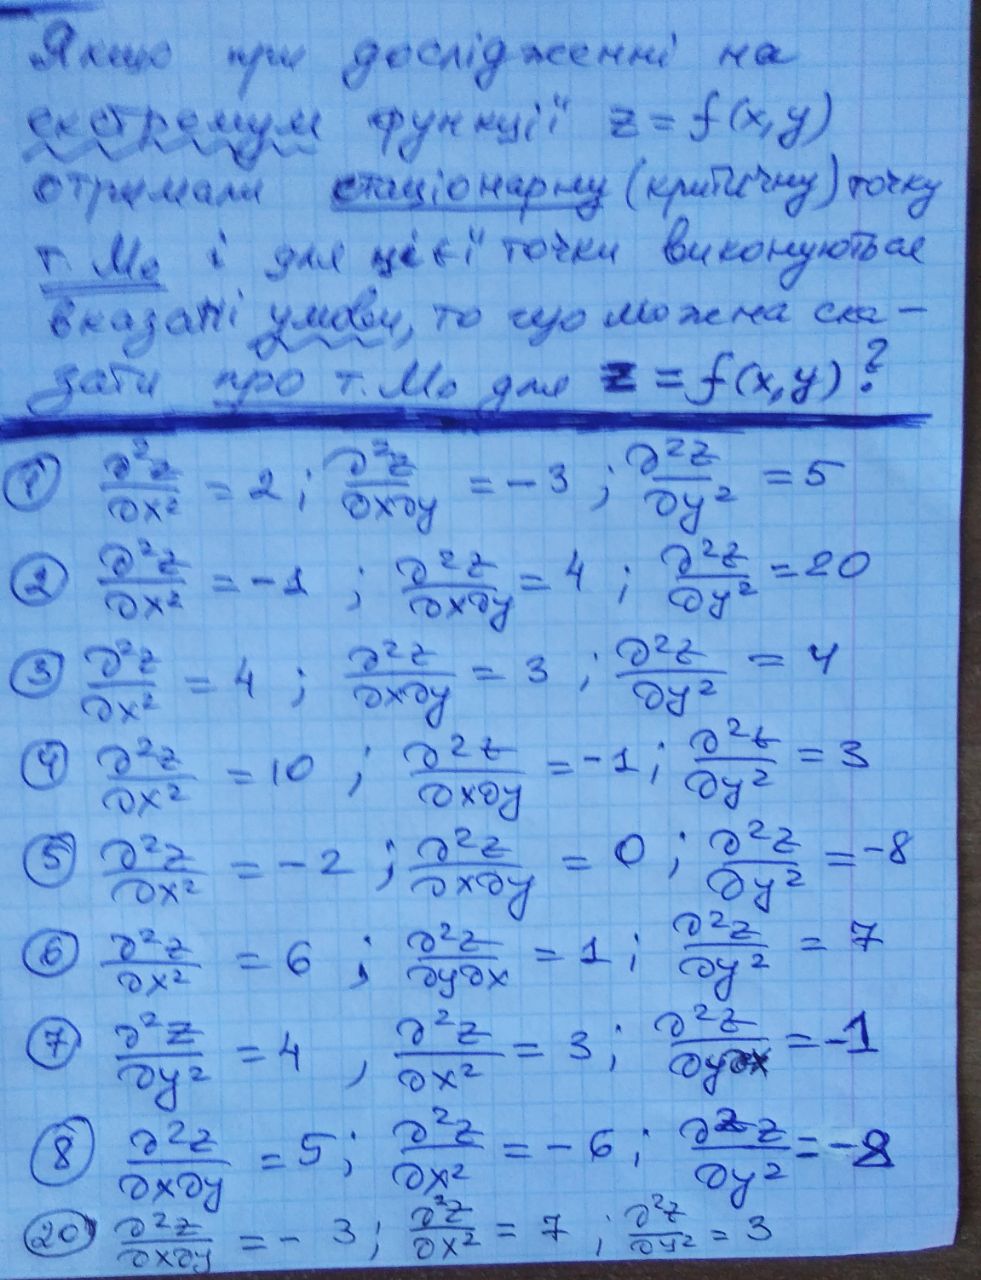 Якщо при дослідженні на
екстремум функції z = f(x,y)
отримали стаціонарну (критичну) точку
т. M₀ і для цієї точки виконуються
вказані умови, то що можна ска-
зати про т. M₀ для z = f(x,y)?
① ∂²z/∂x² = 2; ∂²z/∂x∂y = -3; ∂²z/∂y² = 5
② ∂²z/∂x² = -1; ∂²z/∂x∂y = 4; ∂²z/∂y² = 20
③ ∂²z/∂x² = 4; ∂²z/∂x∂y = 3; ∂²z/∂y² = 4
④ ∂²z/∂x² = 10; ∂²z/∂x∂y = -1; ∂²z/∂y² = 3
⑤ ∂²z/∂x² = -2; ∂²z/∂x∂y = 0; ∂²z/∂y² = -8
⑥ ∂²z/∂x² = 6; ∂²z/∂y∂x = 1; ∂²z/∂y² = 7
⑦ ∂²z/∂y² = 4, ∂²z/∂x² = 3; ∂²z/∂y∂x = -1
⑧ ∂²z/∂x∂y = 5; ∂²z/∂x² = -6; ∂²z/∂y² = -8
⑳ ∂²z/∂x∂y = -3; ∂²z/∂x² = 7; ∂²z/∂y² = 3